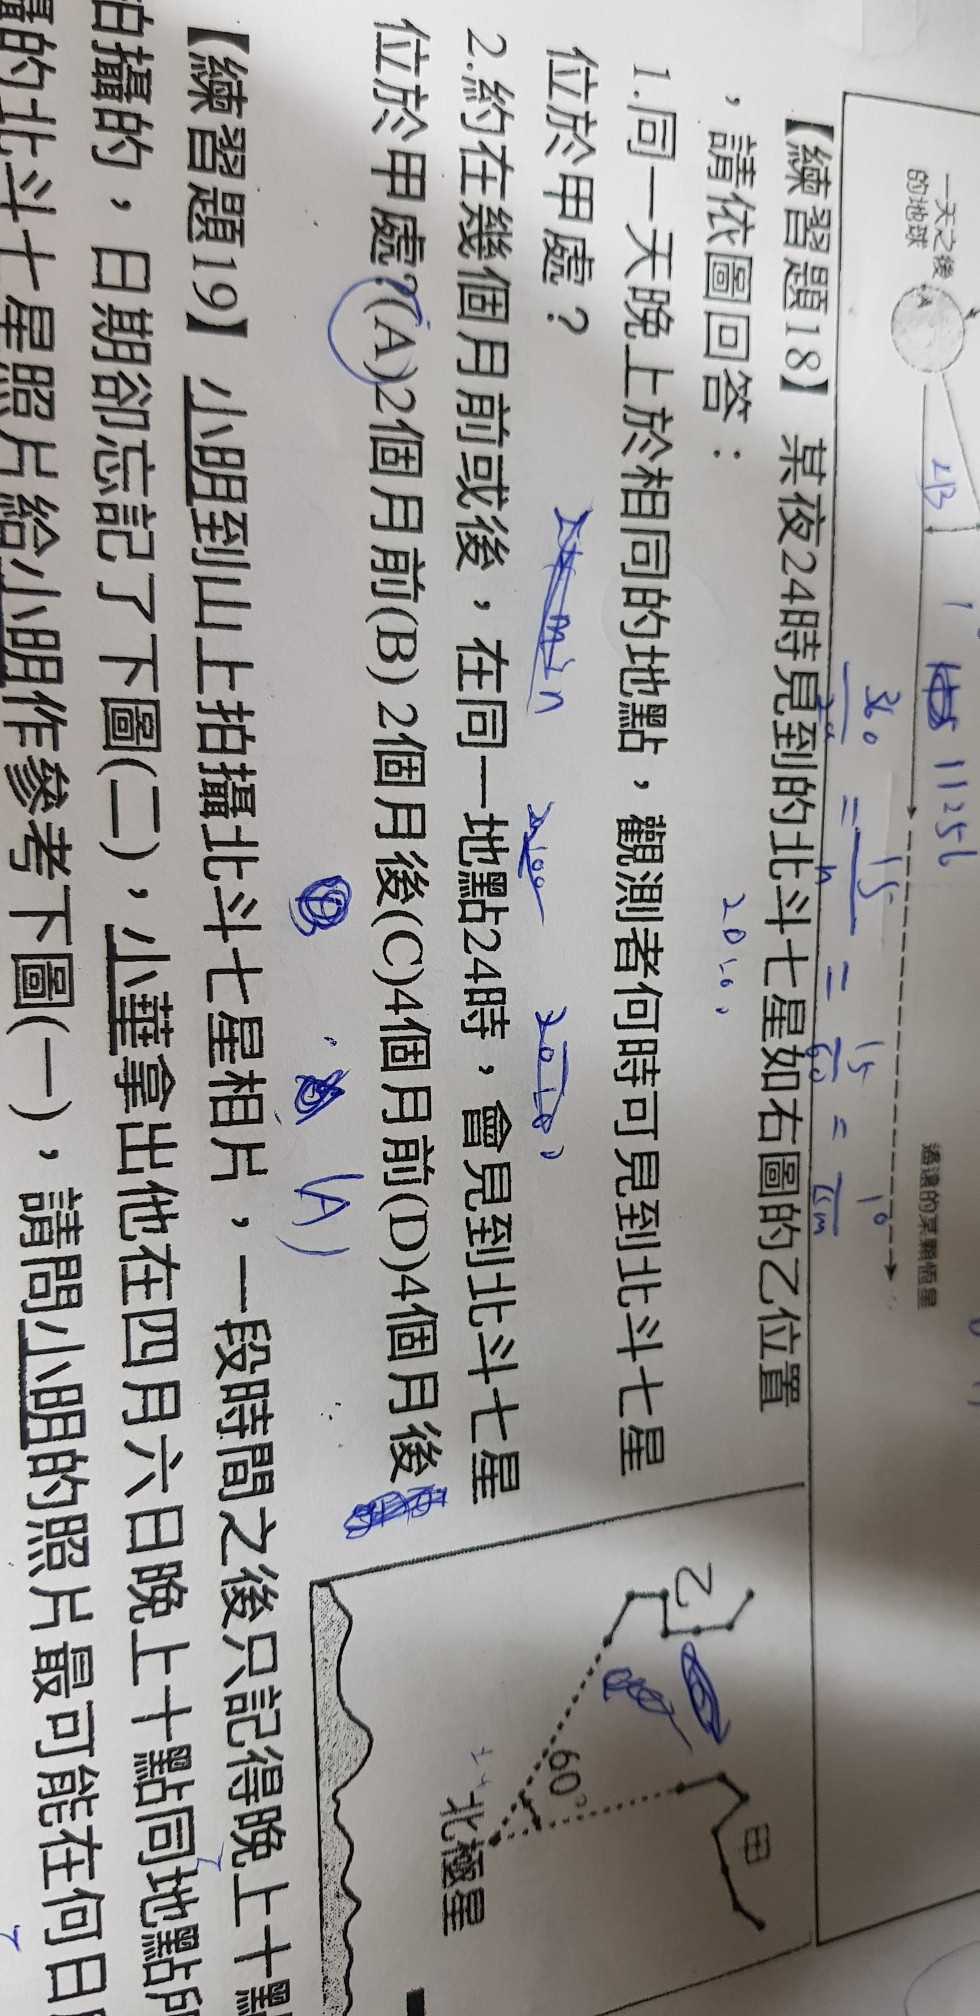 一天之後
的地球
遙遠的某顆恆星
360
15
15
1°
【練習題18】 某夜24時見到的北斗七星如右圖的乙位置
，請依圖回答：
1.同一天晚上於相同的地點，觀測者何時可見到北斗七星
位於甲處？
2.約在幾個月前或後，在同一地點24時，會見到北斗七星
位於甲處?(A)2個月前(B) 2個月後(C)4個月前(D)4個月後
(A)
乙
甲
60°
北極星
【練習題19】 小明到山上拍攝北斗七星相片，一段時間之後只記得晚上十點
拍攝的，日期卻忘記了下圖(二)，小華拿出他在四月六日晚上十點同地點所
攝的北斗七星照片給小明作參考下圖(一)，請問小明的照片最可能在何日